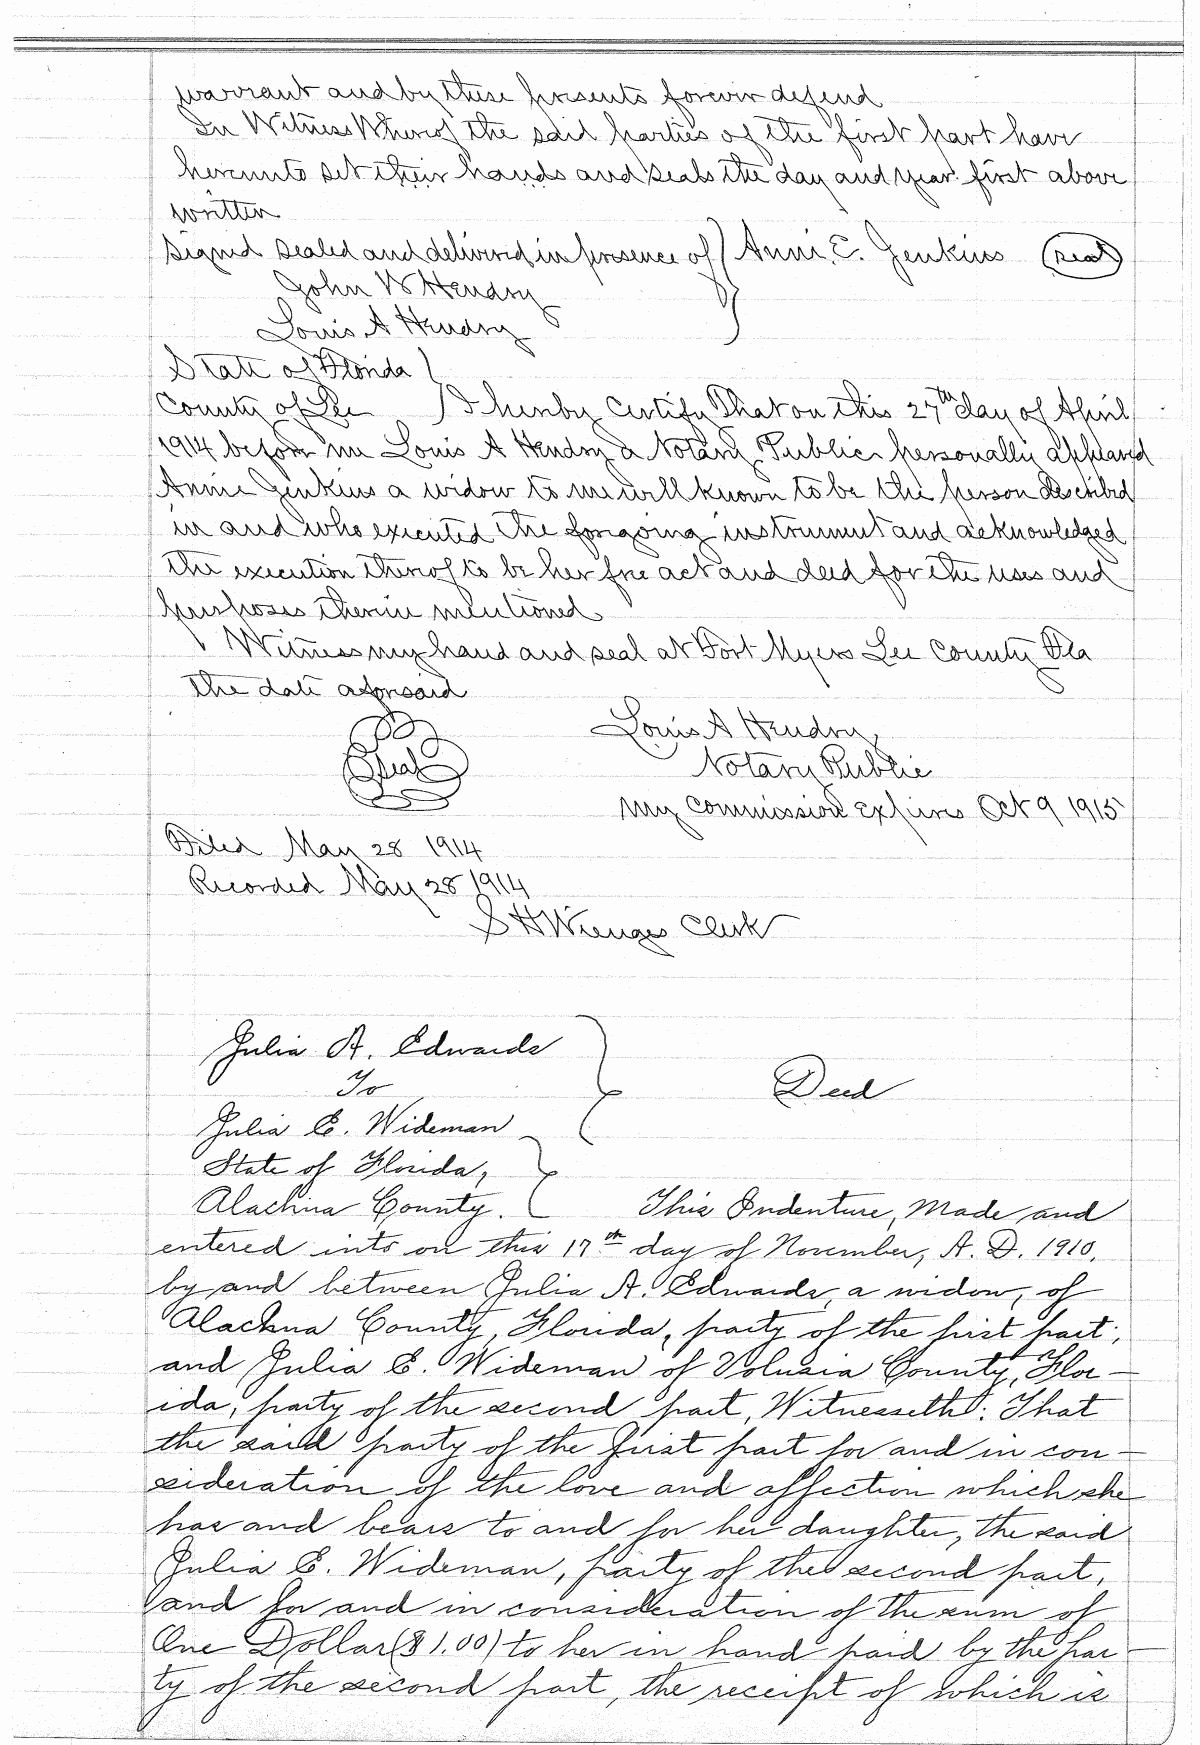 warrant and by these presents forever defend
In Witness Whereof the said parties of the first part have
hereunto set their hands and seals the day and year first above
written
Signed sealed and delivered in presence of } Annie E. Jenkins (seal)
John W Hendry
Louis A Hendry
State of Florida
County of Lee } I hereby Certify That on this 27th day of April
1914 before me Louis A Hendry a Notary Public personally appeared
Annie Jenkins a widow to me well known to be the person described
in and who executed the foregoing instrument and acknowledged
the execution thereof to be her free act and deed for the uses and
purposes therein mentioned
Witness my hand and seal at Fort Myers Lee County Fla
the date aforesaid
Louis A Hendry
Seal Notary Public
My commission expires Oct 9 1915
Filed May 28 1914
Recorded May 28 1914
S H Wienges Clerk
Julia A. Edwards
To Deed
Julia E. Wideman
State of Florida,
Alachua County. This Indenture, Made and
entered into on this 17th day of November, A. D. 1910,
by and between Julia A. Edwards, a widow, of
Alachua County, Florida, party of the first part,
and Julia E. Wideman of Volusia County, Flor-
ida, party of the second part, Witnesseth: That
the said party of the first part for and in con-
sideration of the love and affection which she
has and bears to and for her daughter, the said
Julia E. Wideman, party of the second part,
and for and in consideration of the sum of
One Dollar ($1.00) to her in hand paid by the par-
ty of the second part, the receipt of which is